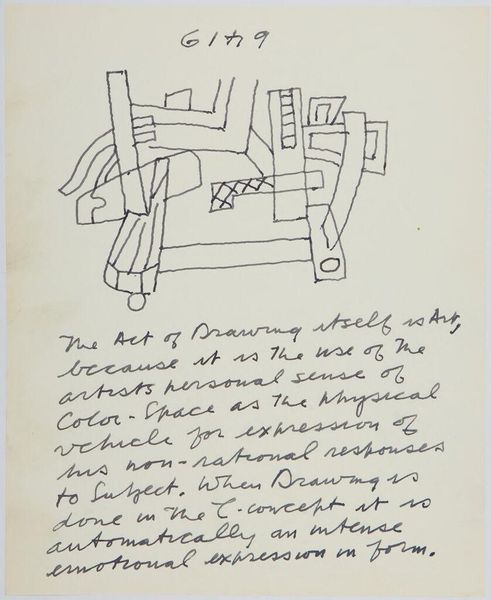 6 4 1 9
The Act of Drawing itself is Art,
because it is The use of The
artists personal sense of
Color-Space as The physical
vehicle for expression of
his non-rational responses
to Subject. When Drawing is
done in The C-concept it is
automatically an intense
emotional expression in form.